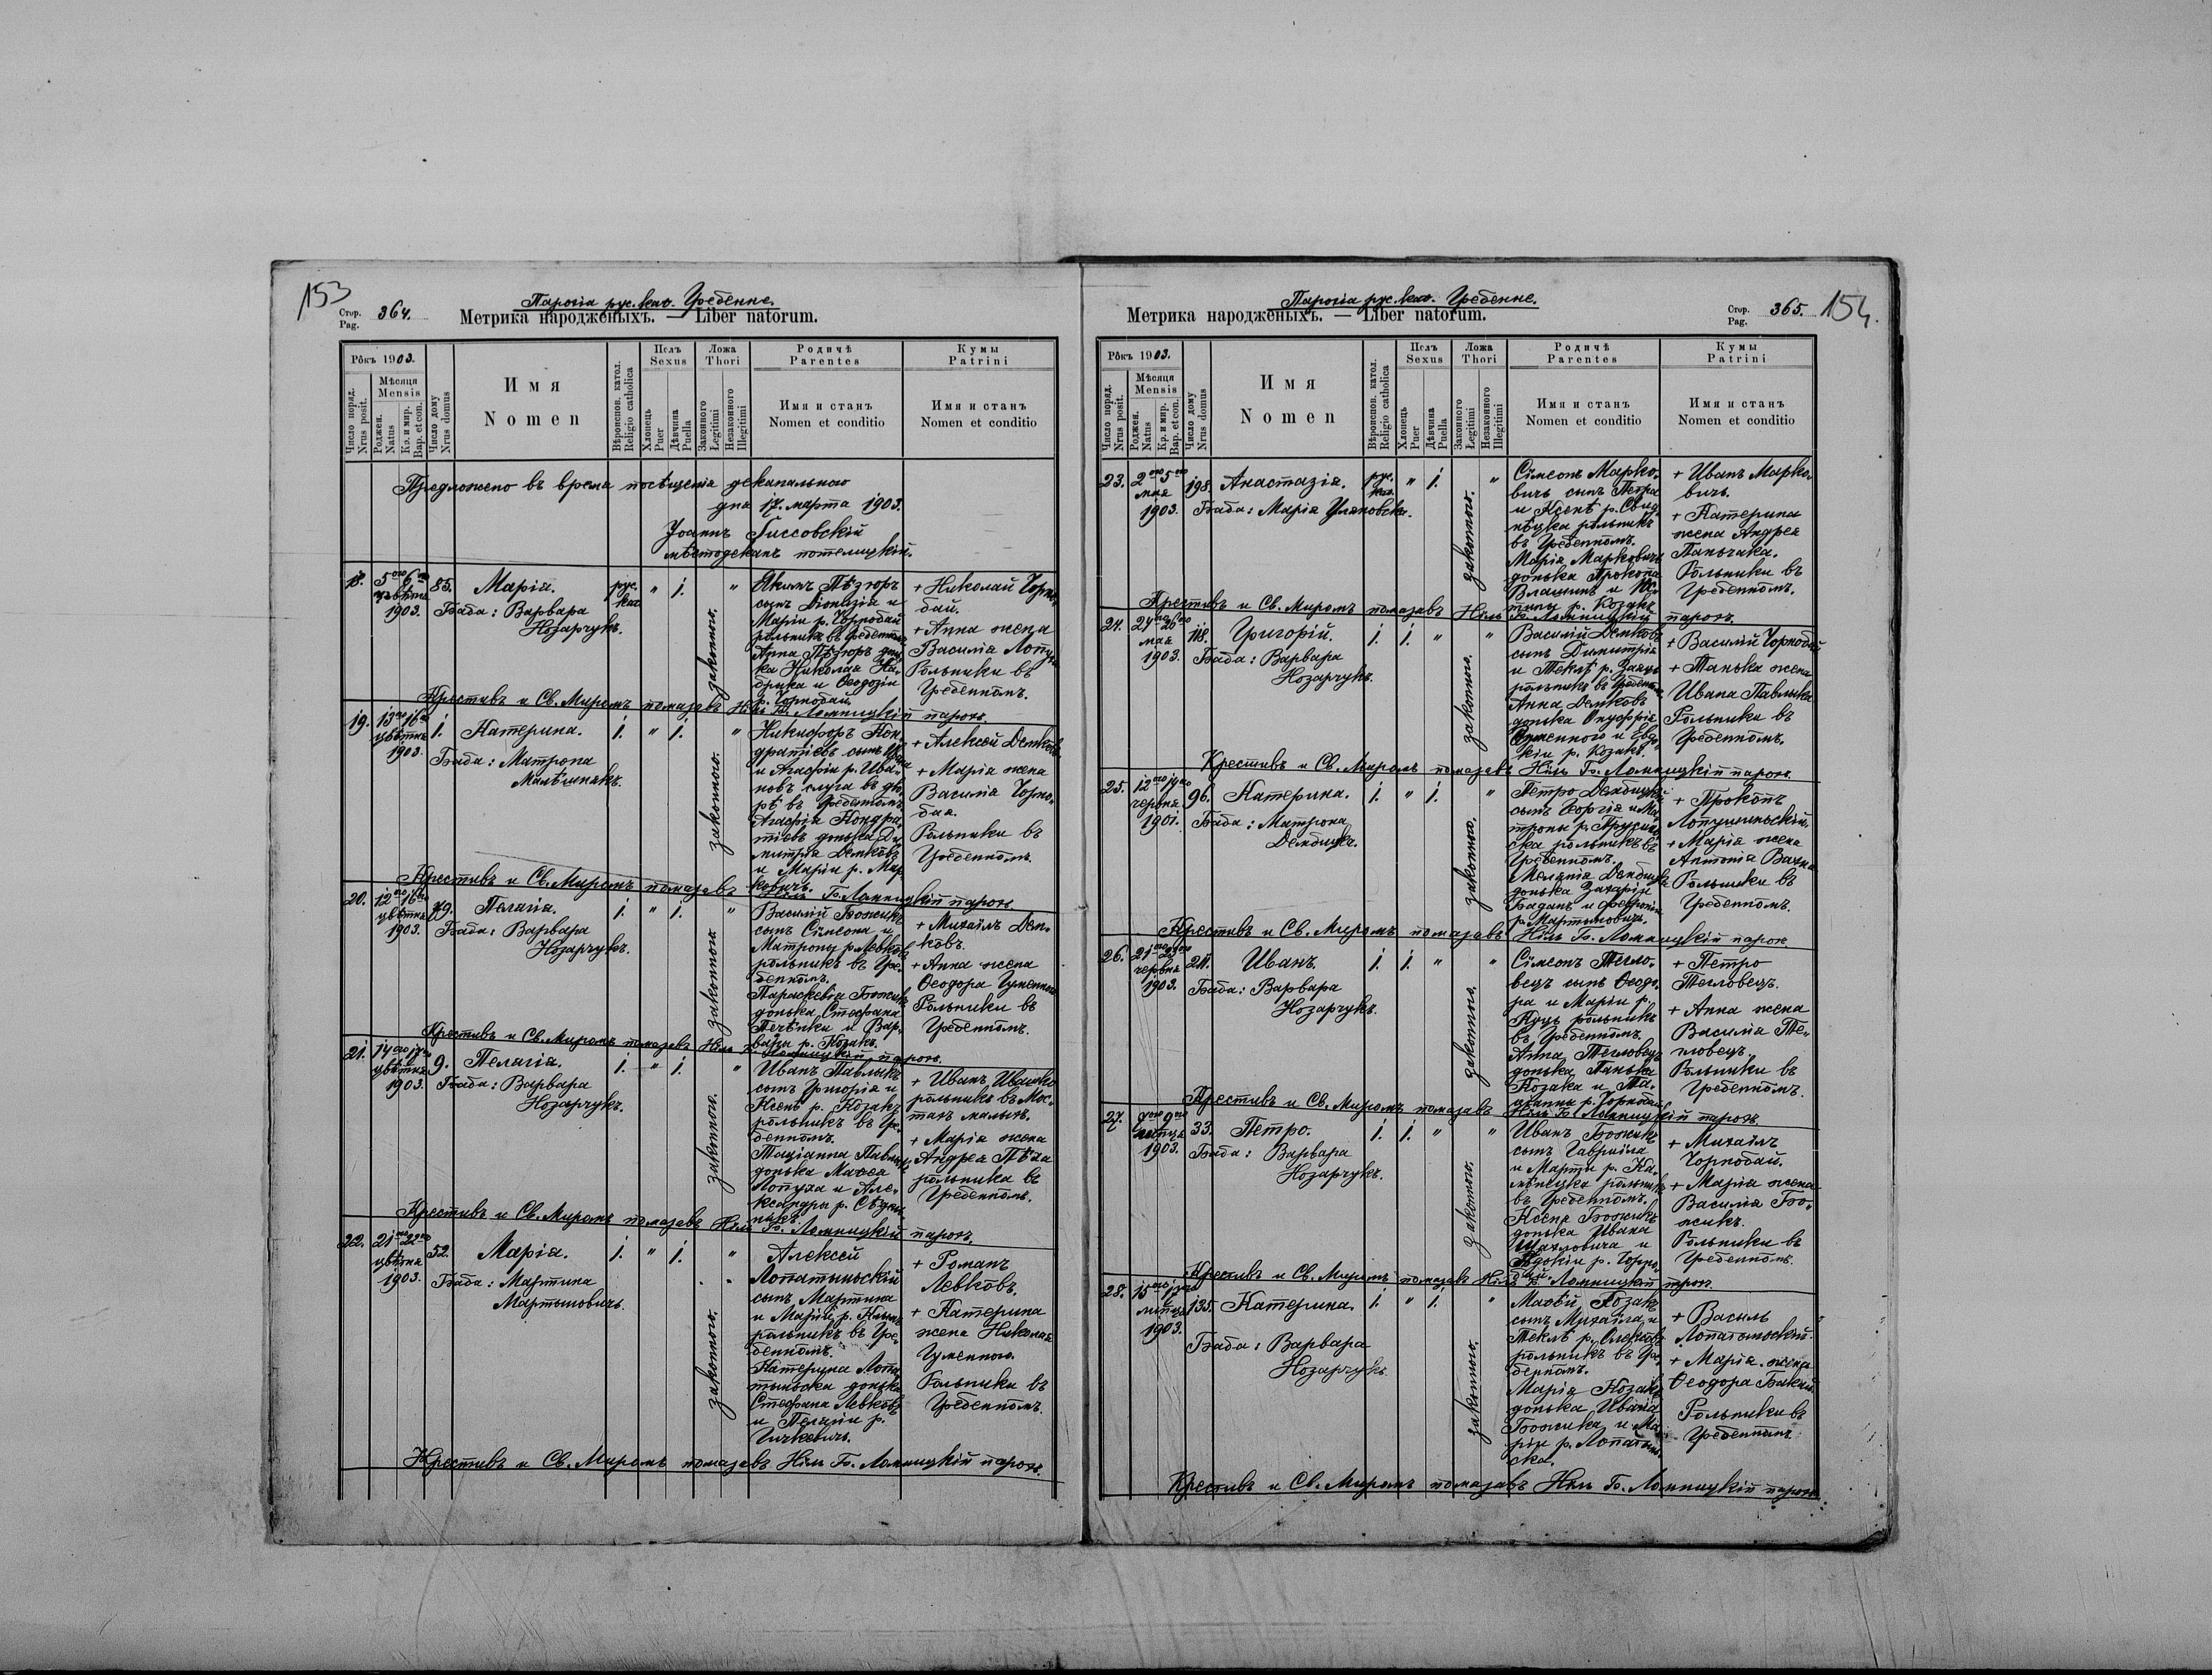 153
Парохія рус. кат. Угребенне.
Стор.
Pag.
364.
Метрика народженыхъ. — Liber natorum.
Рôкъ 1903.
Число поряд.
Nrus posit.
Мѣсяця
Mensis
Роджен.
Natus
Кр. и мир.
Bap. et con.
Число дому
Nrus domus
Имя
Nomen
Вѣроиспов. катол.
Religio catholica
Полъ
Sexus
Хлопець
Puer
Дѣвчина
Puella
Ложа
Thori
Законного
Legitimi
Незаконного
Illegitimi
Родичѣ
Parentes
Имя и станъ
Nomen et conditio
Кумы
Patrini
Имя и станъ
Nomen et conditio
Предложено въ время посѣщенія деканального
дня 17. марта 1903.
Іоаннъ Гиссовскій
мѣстодеканъ потелицкій.
18.
5ого 6ого
цвѣтня
1903.
85.
Марія.
Баба: Варвара
Нозарчукъ.
рус.
кат.
" 1.
законного.
"
Якимъ Пѣзюръ
сынъ Діонизія и
Маріи р. Чорнобай
рольникъ въ Угребенномъ.
Анна Пѣзюръ донь-
ка Николая
и Ѳеодозіи
р. Чорнобай.
+ Николай Чорно-
бай.
+ Анна жена
Василія Лопух
Рольники въ
Угребенномъ.
Крестивъ и Св. Миромъ помазавъ Ніль Б. Ломницкій парох.
19.
13ого 16ого
цвѣтня
1903.
1.
Катерина.
Баба: Матрона
1. " 1.
законного.
"
Никифоръ Кон-
дратіевъ сынъ
и Агафіи р. Ива-
новъ слуга въ дво-
рѣ въ Угребенномъ.
Агафія Кондра-
тіевъ донька Ди-
митрія Демковъ
и Маріи р. Мар-
ковичъ.
+ Алексей Демковъ.
+ Марія жена
Василія Чорно-
бая.
Рольники въ
Угребенномъ.
Крестивъ и Св. Миромъ помазавъ Ніль Б. Ломницкій парох.
20.
12ого 16ого
цвѣтня
1903.
79.
Пелагія.
Баба: Варвара
Нозарчукъ.
1. " 1.
законного
"
Василій Божикъ
сынъ Сѵмеона и
Матроны р. Левковъ
рольникъ въ Угре-
бенномъ.
Параскевія Божикъ
донька Стефана
Печѣнки и Вар-
вары р. Козакъ.
+ Михаилъ Дем-
ковъ.
+ Анна жена
Ѳеодора Гуменного
Рольники въ
Угребенномъ.
Крестивъ и Св. Миромъ помазавъ Ніль Б. Ломницкій парох.
21.
14ого 17ого
цвѣтня
1903.
9.
Пелагія.
Баба: Варвара
Нозарчукъ.
1. " 1.
законного.
"
Иванъ Павлыкъ
сынъ Григорія и
Ксенѣ р. Козакъ
рольникъ въ Угре-
бенномъ.
Таціанна Павлыкъ
донька Матея
Лопуха и Але-
ксандры р.
+ Иванъ Ивашко
рольникъ въ Мос-
тахъ малыхъ.
+ Марія жена
Андрея Пѣха
рольника въ
Угребенномъ.
Крестивъ и Св. Миромъ помазавъ Ніль Б. Ломницкій парох.
22.
21ого 22ого
цвѣтня
1903.
52.
Марія.
Баба: Мартина
Мартыновичъ.
1. " 1.
законного.
"
Алексей
Лопатыньскій
сынъ Мартина
и Маріи р.
рольникъ въ Угре-
бенномъ.
Катерина Лопа-
тыньска донька
Стефана Левковъ
и Пелагіи р.
Гичкевичъ.
+ Романъ
Левковъ.
+ Катерина
жена Николая
Гуменного.
Рольники въ
Угребенномъ.
Крестивъ и Св. Миромъ помазавъ Ніль Б. Ломницкій парох.
Парохія рус. кат. Угребенне.
Метрика народженыхъ. — Liber natorum.
Стор.
Pag.
365.
154.
Рôкъ 1903.
Число поряд.
Nrus posit.
Мѣсяця
Mensis
Роджен.
Natus
Кр. и мир.
Bap. et con.
Число дому
Nrus domus
Имя
Nomen
Вѣроиспов. катол.
Religio catholica
Полъ
Sexus
Хлопець
Puer
Дѣвчина
Puella
Ложа
Thori
Законного
Legitimi
Незаконного
Illegitimi
Родичѣ
Parentes
Имя и станъ
Nomen et conditio
Кумы
Patrini
Имя и станъ
Nomen et conditio
23.
2ого 5ого
мая
1903.
198.
Анастазія.
Баба: Марія Уляновска.
рус.
кат.
" 1.
законного.
"
Сѵмеонъ Марко-
вичъ сынъ Петра
и Ксенѣ р. Свид-
нѣцка рольникъ
въ Угребенномъ.
Марія Марковичъ
донька Прокопа
р. Козакъ.
+ Иванъ Марко-
вичъ.
+ Катерина
жена Андрея
Паньчака.
Рольники въ
Угребенномъ.
Крестивъ и Св. Миромъ помазавъ Ніль Б. Ломницкій парох.
24.
24ого 26ого
мая
1903.
118.
Григорій.
Баба: Варвара
Нозарчукъ.
1. 1. "
законного.
"
Василій Демковъ
сынъ Димитрія
и Теклѣ р. Заяцъ
рольникъ въ Угребенномъ.
Анна Демковъ
донька Онуфрія
Гуменного и Евдо-
кіи р. Козакъ.
+ Василій Чорнобай
+ Танька жена
Ивана Павлыка
Рольники въ
Угребенномъ.
Крестивъ и Св. Миромъ помазавъ Ніль Б. Ломницкій парох.
25.
12ого 14ого
червня
1901.
96.
Катерина.
Баба: Матрона
Дембицка.
1. " 1.
законного.
"
Петро Дембицкій
сынъ Георгія и Ма-
троны р.
ска рольникъ въ
Угребенномъ.
Меланія Дембицка
донька Захаріи
Баданъ и Февроніи
р. Мартыновичъ.
+ Прокопъ
Лопушиньскій.
+ Марія жена
Антонія
Рольники въ
Угребенномъ.
Крестивъ и Св. Миромъ помазавъ Ніль Б. Ломницкій парох
26.
21ого 23ого
червня
1903.
211.
Иванъ.
Баба: Варвара
Нозарчукъ.
1. 1. "
законного.
"
Сѵмеонъ Тепло-
вецъ сынъ Ѳеодо-
ра и Маріи р.
Куцъ рольникъ
въ Угребенномъ.
Анна Тепловецъ
донька Панька
Козака и Та-
ціанны р. Чорнобай.
+ Петро
Тепловецъ.
+ Анна жена
Василія Те-
пловецъ.
Рольники въ
Угребенномъ.
Крестивъ и Св. Миромъ помазавъ Ніль Б. Ломницкій парох.
27.
7ого 9ого
липця
1903.
33.
Петро.
Баба: Варвара
Нозарчукъ.
1. 1. "
законного.
"
Иванъ Божикъ
сынъ Гавріила
и Марты р. Ка-
мѣницка рольникъ
въ Угребенномъ.
Ксена Божикъ
донька Ивана
и
Евдокіи р. Чорно-
бай.
+ Михаилъ
Чорнобай.
+ Марія жена
Василія Бо-
жика.
Рольники въ
Угребенномъ.
Крестивъ и Св. Миромъ помазавъ Ніль Б. Ломницкій парох.
28.
15ого 17ого
липця
1903.
135.
Катерина.
Баба: Варвара
Нозарчукъ.
1. " 1.
законного.
"
Матѳій Козакъ
сынъ Михаила и
Теклѣ р.
рольникъ въ Угре-
бенномъ.
Марія Козакъ
донька Ивана
Божика и Ма-
ріи р. Лопатынь-
ска.
+ Василь
Лопатыньскій.
+ Марія жена
Ѳеодора
Рольники въ
Угребенномъ.
Крестивъ и Св. Миромъ помазавъ Ніль Б. Ломницкій парох.